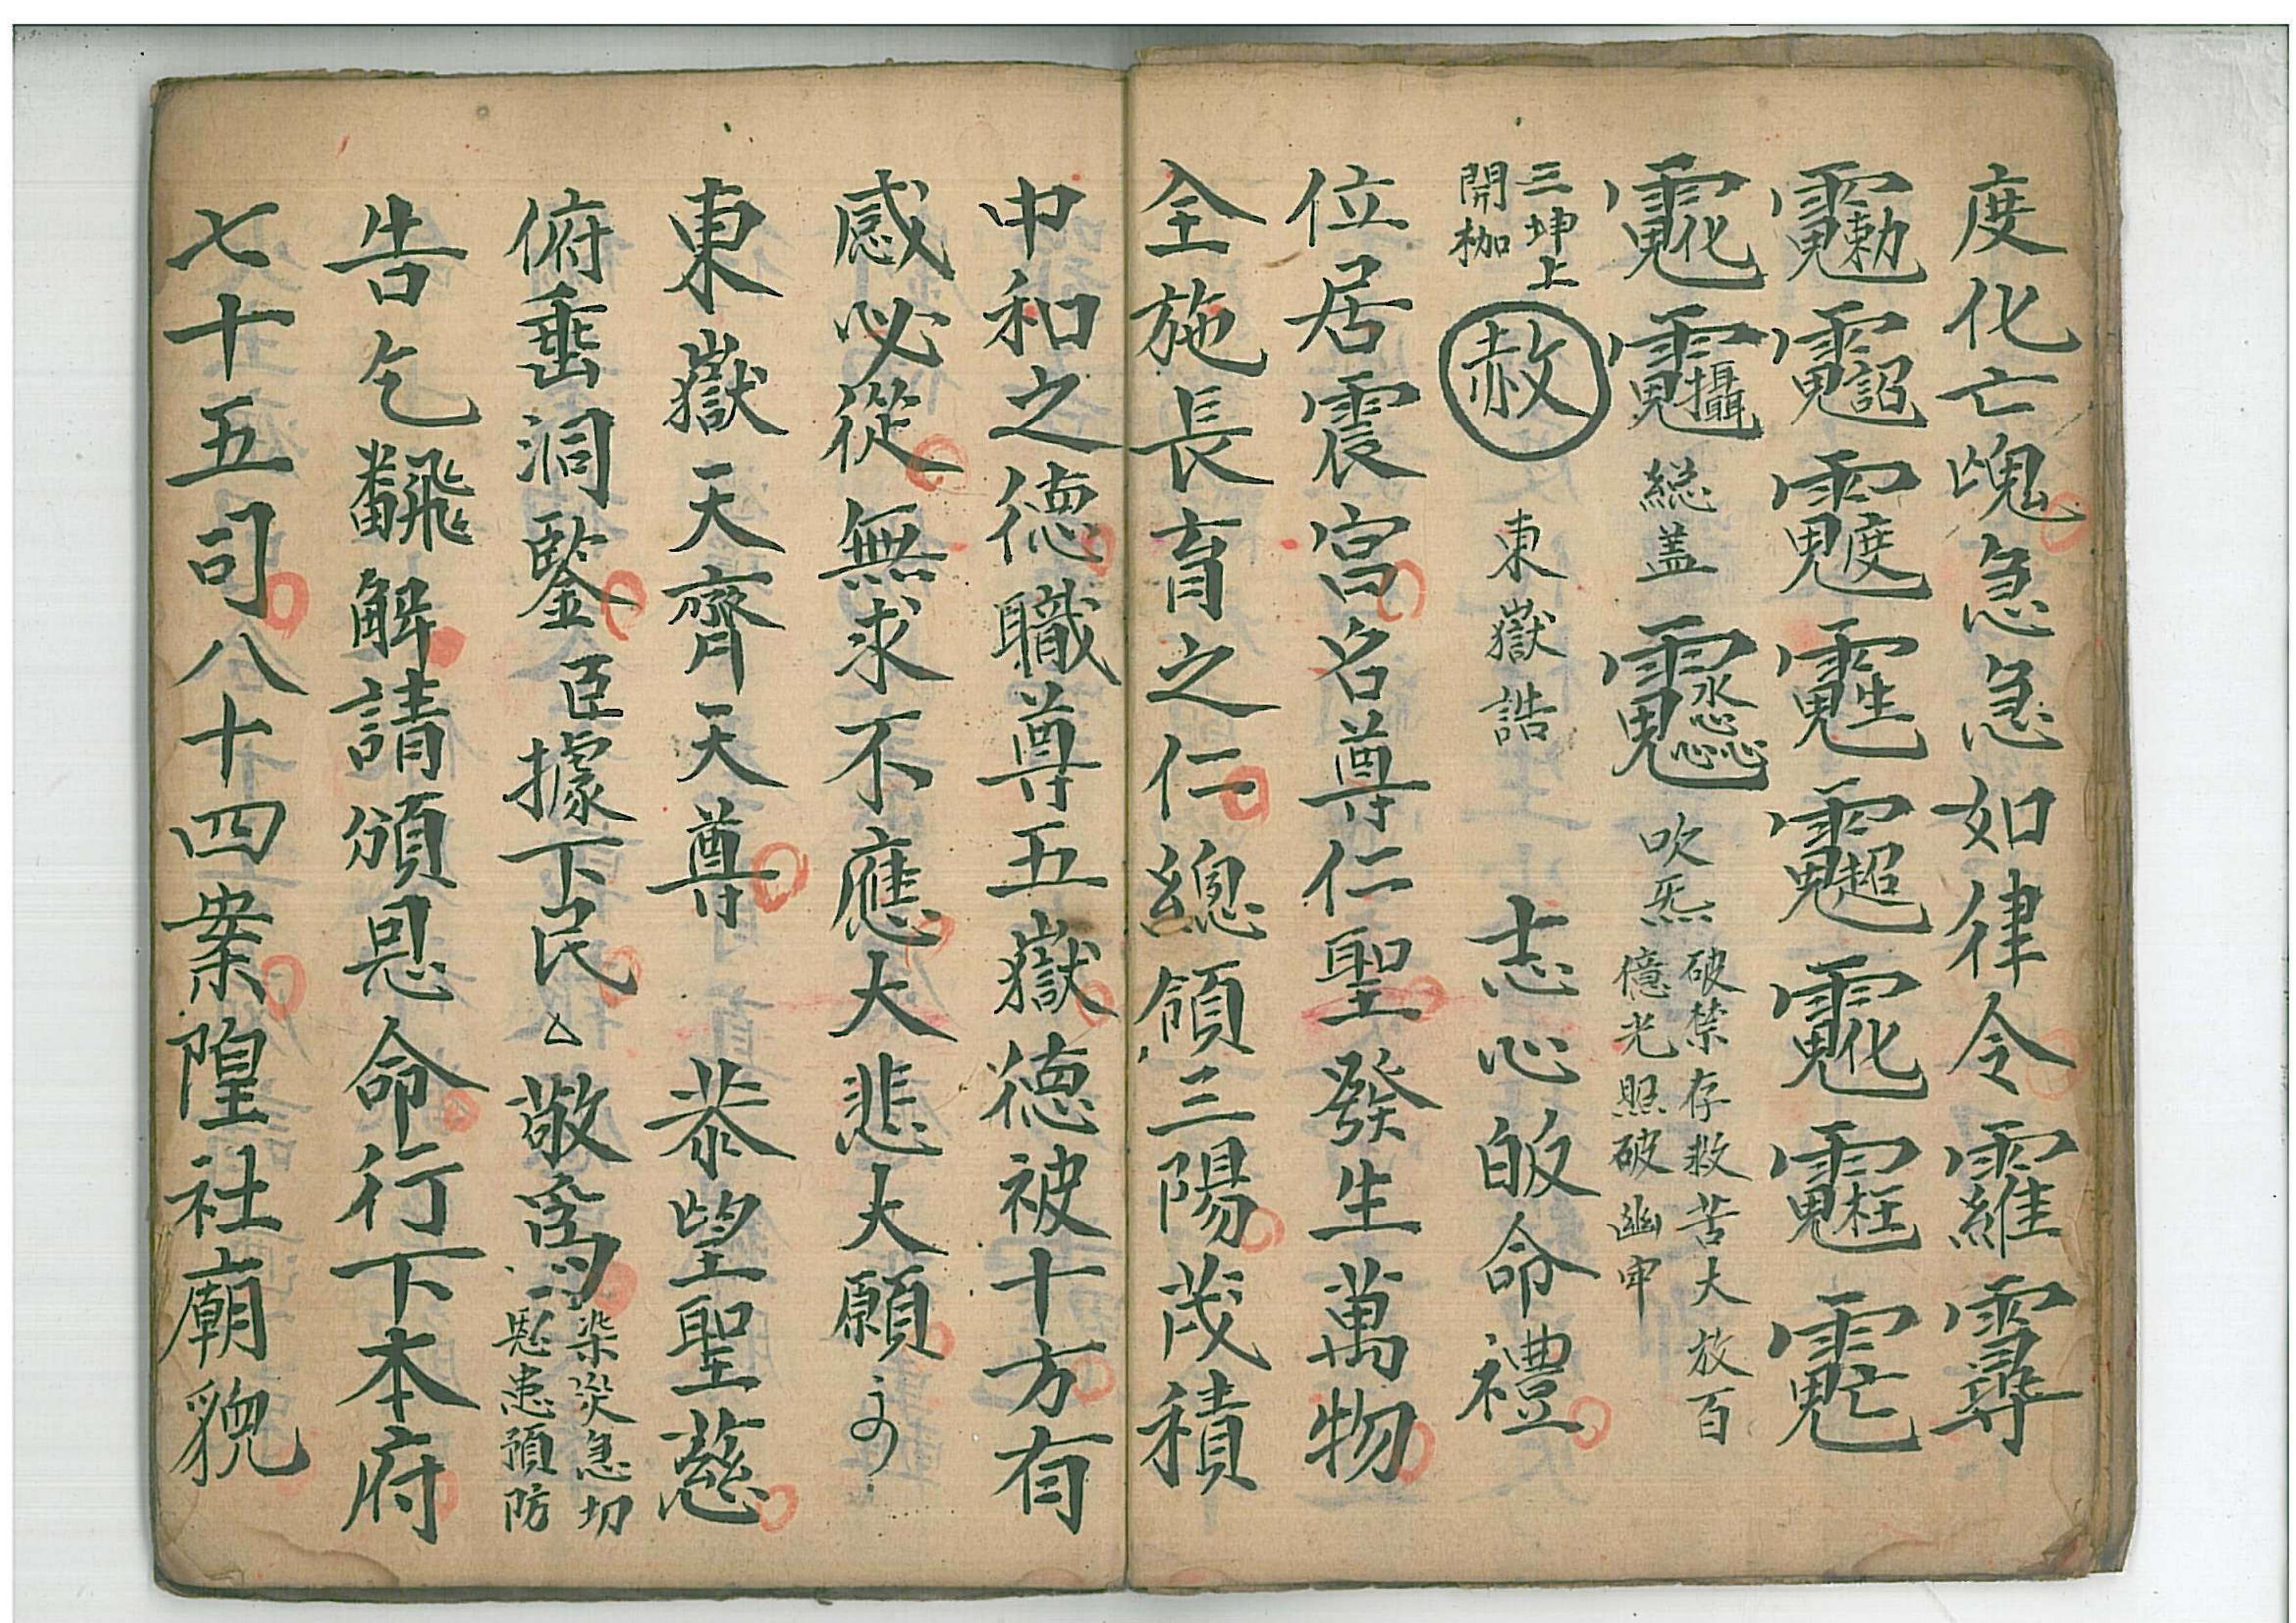 度化亡魂急急如律令
総盖
吹炁
破禁存救苦大放百
億光照破幽牢
三坤上
開枷
赦
東嶽誥
志心皈命禮
位居震宮名尊仁聖發生萬物
全施長育之仁總領三陽茂積
中和之德職尊五嶽德被十方有
感必從無求不應大悲大願
東嶽天齊天尊
恭望聖慈
俯垂洞鑒臣據下民△敬為
染災急切
患預防
告乞飜解請頒恩命行下本府
七十五司八十四案隍社廟貌